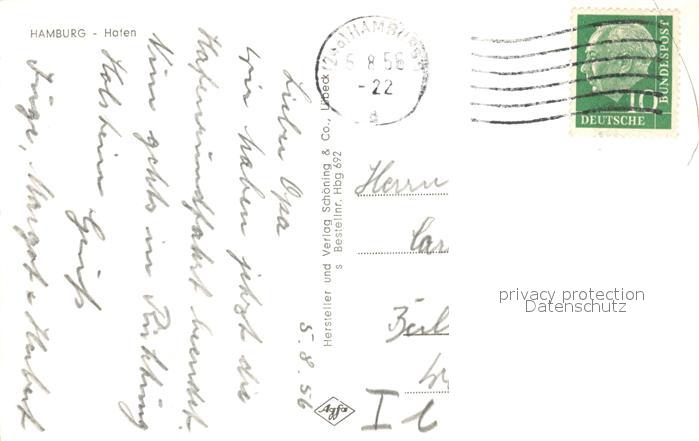 HAMBURG - Hafen
5.8.56
Lieber Opa
wir haben jetzt die
Hafenrundfahrt beendet.
Nun gehts in Richtung
Holstein
Gruß
Inge, Margot + Herbert
Hersteller und Verlag Schöning & Co., Lübeck
s Bestellnr. Hbg 692
Agfa
HAMBURG
5.8.56
-22
a
10
DEUTSCHE
BUNDESPOST
Herrn
privacy protection
Datenschutz